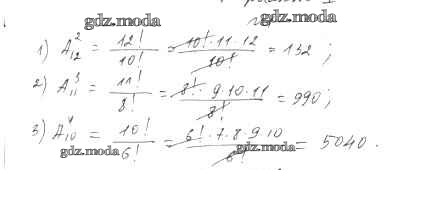 gdz.moda gdz.moda
1) A₁₂² = 12!/10! = 10!·11·12/10! = 132 ;
2) A₁₁³ = 11!/8! = 8!·9·10·11/8! = 990 ;
3) A₁₀⁴ = 10!/6! = 6!·7·8·9·10/6! = 5040 .
gdz.moda gdz.moda